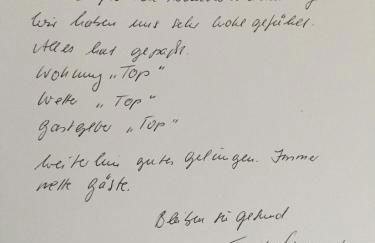 Wir haben uns sehr wohl gefühlt.
Alles hat gepaßt.
Wohnung "Top"
Wetter "Top"
Gastgeber "Top"
Weiterhin gutes Gelingen. Immer
nette Gäste.
Bleiben Sie gesund